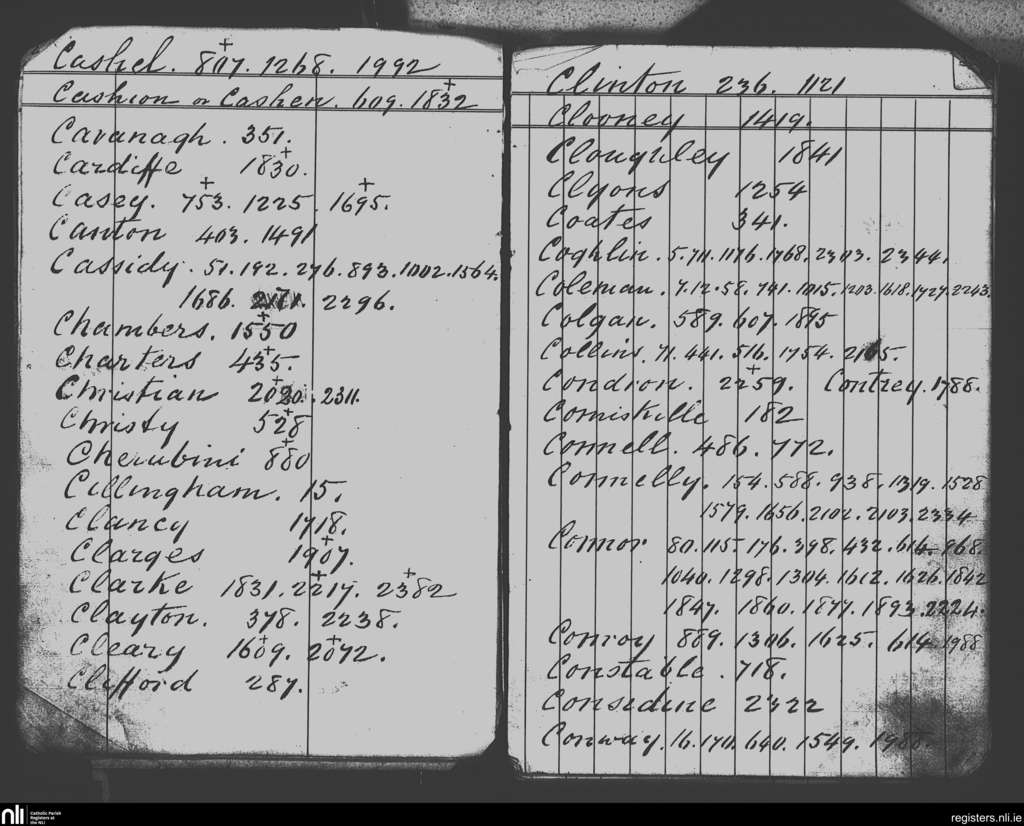 Cashel. 807. 1268. 1992
Cashion or Cashen. 609. 1832
Cavanagh. 351.
Cardiffe 1830.
Casey. 753. 1225. 1695.
Canton 403. 1491
Cassidy. 51. 192. 276. 893. 1002. 1564.
1686. 2171. 2296.
Chambers. 1550
Charters 435.
Christian 2020. 2311.
Christy 528
Cherubini 880
Cillingham. 15.
Clancy 1718.
Clarges 1907.
Clarke 1831. 2217. 2382
Clayton. 378. 2238.
Cleary 1609. 2072.
Clifford 287.
Clinton 236. 1121
Clooney 1419.
Cloughley 1841
Clyons 1254
Coates 341.
Coghlin. 5. 711. 1176. 1768. 2303. 2344.
Coleman. 7. 12. 58. 741. 1015. 1203. 1618. 1727. 2243.
Colgan. 589. 607. 1895
Collins. 71. 441. 516. 1754. 2165.
Condron. 2259. Contrey. 1788.
Comiskille 182
Connell. 486. 772.
Connelly. 154. 588. 938. 1319. 1528
1579. 1656. 2102. 2103. 2334
Connor 80. 115. 176. 398. 432. 614. 968.
1040. 1298. 1304. 1612. 1626. 1842
1847. 1860. 1877. 1893. 2224.
Conroy 889. 1306. 1625. 614. 1988
Constable. 718.
Considine 2322
Conway. 16. 170. 640. 1549. 1985.
nli
Catholic Parish
Registers at
the NLI
registers.nli.ie